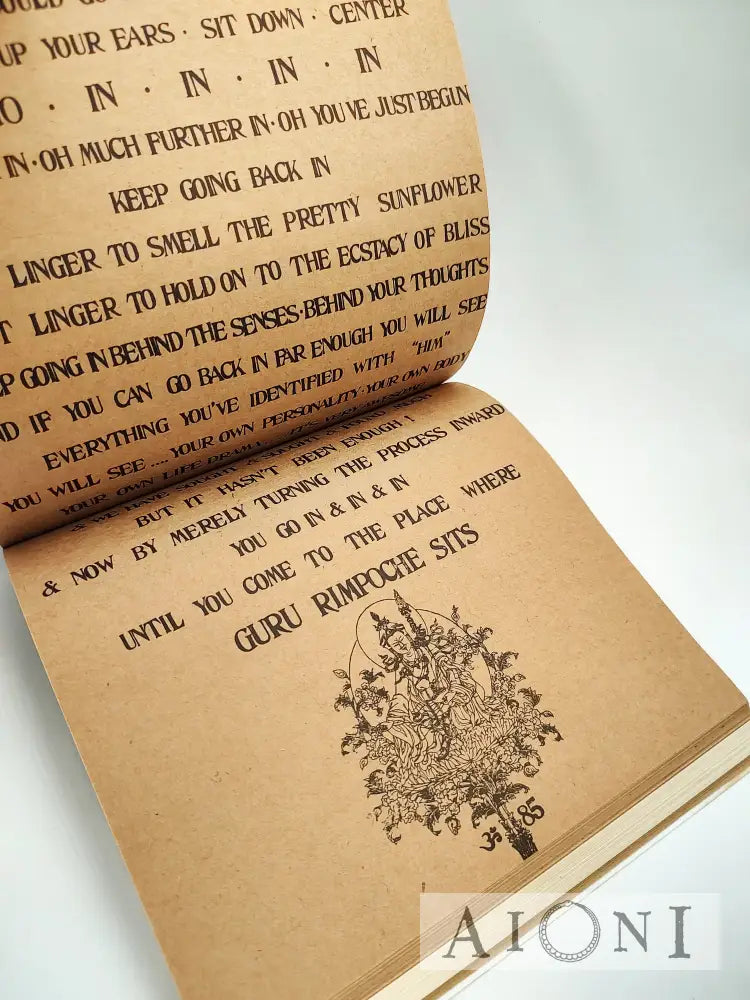 UP YOUR EARS · SIT DOWN · CENTER
· IN · IN · IN · IN
IN · OH MUCH FURTHER IN · OH YOU'VE JUST BEGUN
KEEP GOING BACK IN
LINGER TO SMELL THE PRETTY SUNFLOWER
LINGER TO HOLD ON TO THE ECSTACY OF BLISS
GOING IN BEHIND THE SENSES · BEHIND YOUR THOUGHTS
IF YOU CAN GO BACK IN FAR ENOUGH YOU WILL SEE
EVERYTHING YOU'VE IDENTIFIED WITH "HIM"
YOU WILL SEE .... YOUR OWN PERSONALITY · YOUR OWN BODY
YOUR OWN LIFE DRAMA
& WE HAVE SOUGHT & SOUGHT &
BUT IT HASN'T BEEN ENOUGH !
& NOW BY MERELY TURNING THE PROCESS INWARD
YOU GO IN & IN & IN
UNTIL YOU COME TO THE PLACE WHERE
GURU RIMPOCHE SITS
ॐ 85
AIONI